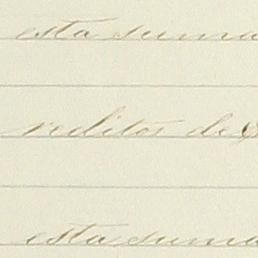 esta suma
reditos de
esta suma